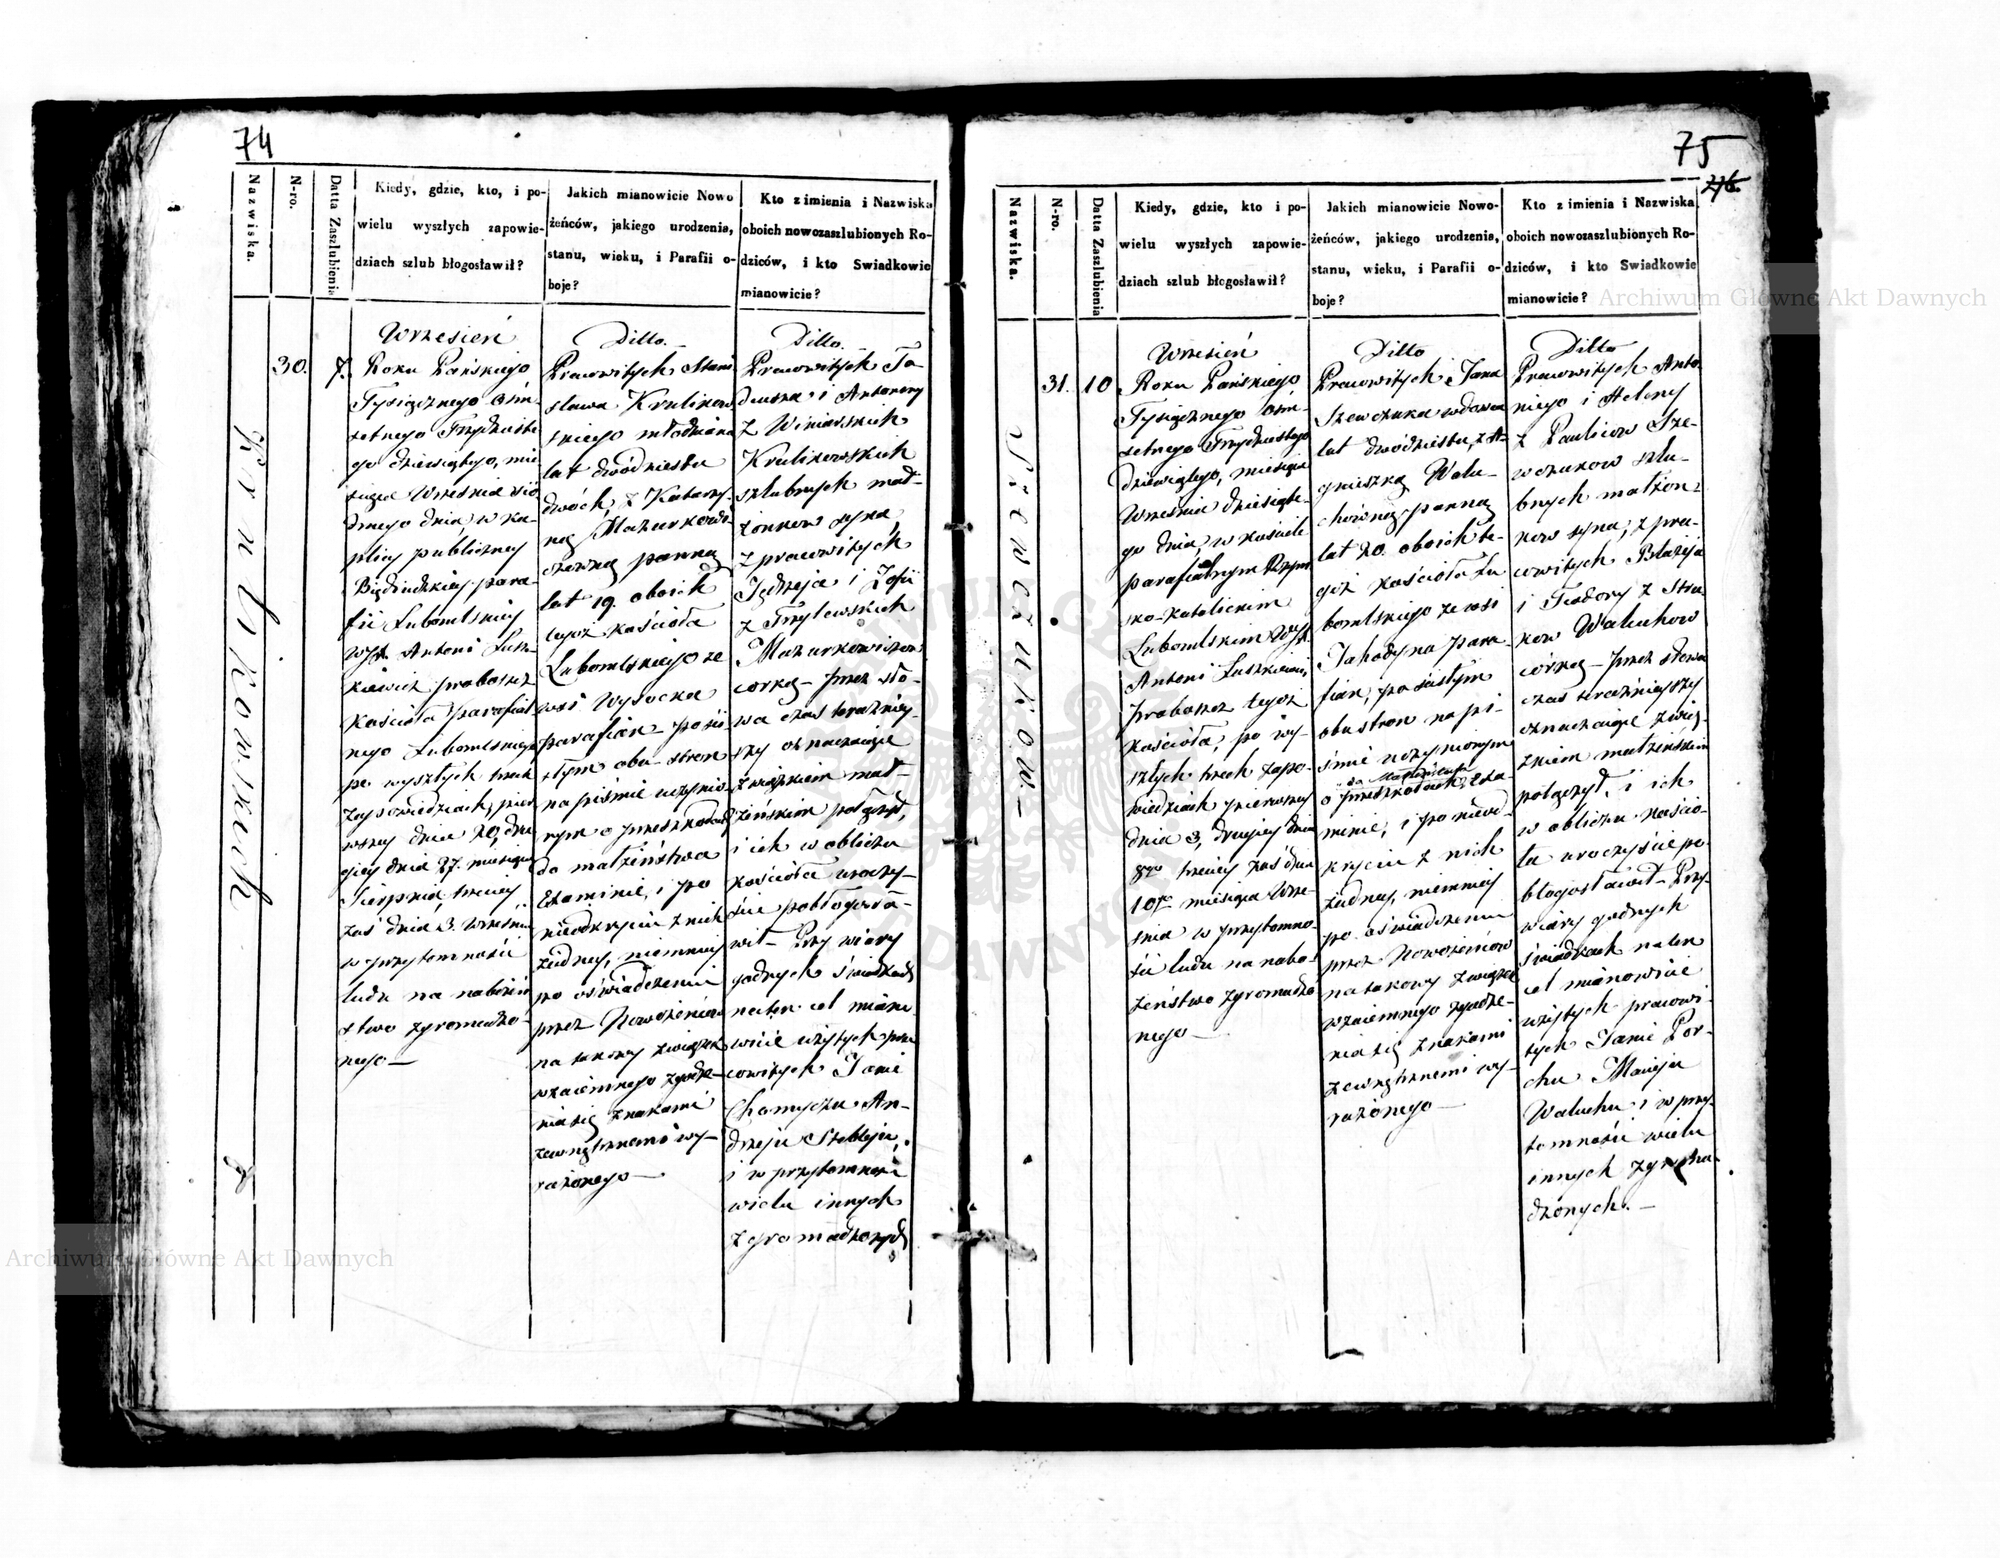 74
Nazwiska.
N-ro.
Datta Zaszlubienia
Kiedy, gdzie, kto, i po-
wielu wyszłych zapowie-
dziach szlub błogosławił?
Jakich mianowicie Nowo
żeńców, jakiego urodzenia,
stanu, wieku, i Parafii o-
boje?
Kto z imienia i Nazwiska
oboich nowozaszlubionych Ro-
dziców, i kto Swiadkowie
mianowicie?
Krulikowskich
30.
7.
Wrzesień
Roku Pańskiego
Tysiącznego ośm-
setnego Trzydzieste
go dziewiątego, mie
siąca Września sió
dmego dnia, w ka-
plicy publiczney
para-
fii Lubomlskiey
WJX. Antoni Lusz-
kiewicz proboszcz
kościoła parafial
nego Lubomlskiego
po wyszłych trzech
zapowiedziach, pier
wszey dnia 20, dru
giey dnia 27. miesiąca
Sierpnia, trzeciey
zaś dnia 3. Września
w przytomności
ludu na nabożeń
stwo zgromadzo-
nego —
Ditto. —
Pracowitych Stani
sława Krulikow
skiego młodziana
lat dwódziestu
dwóch, z Katarzy-
ną Mazurkowi-
czowną panną
lat 19. oboich
tegoż kościoła
Lubomlskiego ze
wsi Wysocka
parafian — po ści
słym obu- stron
na piśmie uczynio
nym o przeszkodach
do małżeństwa
Examinie, i po
nieodkryciu z nich
żadney, niemniey
po oświadczeniu
przez Nowożeńców
na takowy związek
wzaiemnego zgodze-
nia się znakami
zewnętrznemi wy-
rażonego —
Ditto. —
Pracowitych Ta
deusza i Antoniny
z Winiarskich
Krulikowskich
szlubnych mał-
żonkow syna,
z pracowitych
Jędrzeja i Zofii
z Trylewskich
Mazurkowiczow
corką — przez sło-
wa czas teraźniey-
szy oznaczaiące
związkiem mał-
żeńskim połączył,
i ich w obliczu
kościoła uroczy-
ście pobłogosła-
wił — Przy wiary
godnych świadkach
na ten cel miano
wicie użytych pra
cowitych Janie
Chomyczu An-
drzeju
i w przytomności
wielu innych
zgromadzonych
75
276.
Nazwiska.
N-ro.
Datta Zaszlubienia
Kiedy, gdzie, kto i po-
wielu wyszłych zapowie-
dziach szlub błogosławił?
Jakich mianowicie Nowo-
żeńców, jakiego urodzenia,
stanu, wieku, i Parafii o-
boje?
Kto z imienia i Nazwiska
oboich nowozaszlubionych Ro-
dziców, i kto Swiadkowie
mianowicie?
Szewczukow —
31.
10
Wrzesień
Roku Pańskiego
Tysiącznego ośm-
setnego Trzydziestego
dziewiątego, miesiąca
Września dziesiąte-
go dnia, w kościele
parafialnym Rzym
sko-katolickim
Lubomlskim WJX.
Antoni Luszkiewicz,
proboszcz tegoż
kościoła, po wy-
szłych trzech zapo-
wiedziach pierwszey
dnia 3, drugiey dnia
8go trzeciey zaś dnia
10go miesiąca Wrze-
śnia w przytomno-
ści ludu na nabo-
żeństwo zgromadzo
nego —
Ditto
Pracowitych Jana
Szewczuka wdowca
lat dwódziestu, z A-
gnieszką Walu-
chówną panną
lat 20. oboich te-
goż kościoła Lu
bomlskiego ze wsi
Jahodyna para-
fian, po ścisłym
obu stron na pi-
śmie uczynionym
do Małżeństwa
o przeszkodach, Exa
minie, i po nieod-
kryciu z nich
żadney, niemniey
po oświadczeniu
przez Nowożeńców
na takowy związek
wzaiemnego zgodze-
nia się znakami
zewnętrznemi wy-
rażonego —
Ditto
Pracowitych Anto-
niego i Heleny
z Szew-
wczukow szlu-
bnych małżon-
kow syna, z pra-
cowitych Błażeja
i Teodory z Stru
kow Waluchow
córką — przez słowa
czas teraźnieyszy
oznaczaiące zwią-
zkiem małżeńskim
połączył, i ich
w obliczu kościo-
ła uroczyście po-
błogosławił — Przy
wiary godnych
świadkach na ten
cel mianowicie
użytych pracowi-
tych Janie Por-
chu Macieju
Waluchu i w przy-
tomności wielu
innych zgroma-
dzonych. —
Archiwum Główne Akt Dawnych
Archiwum Główne Akt Dawnych